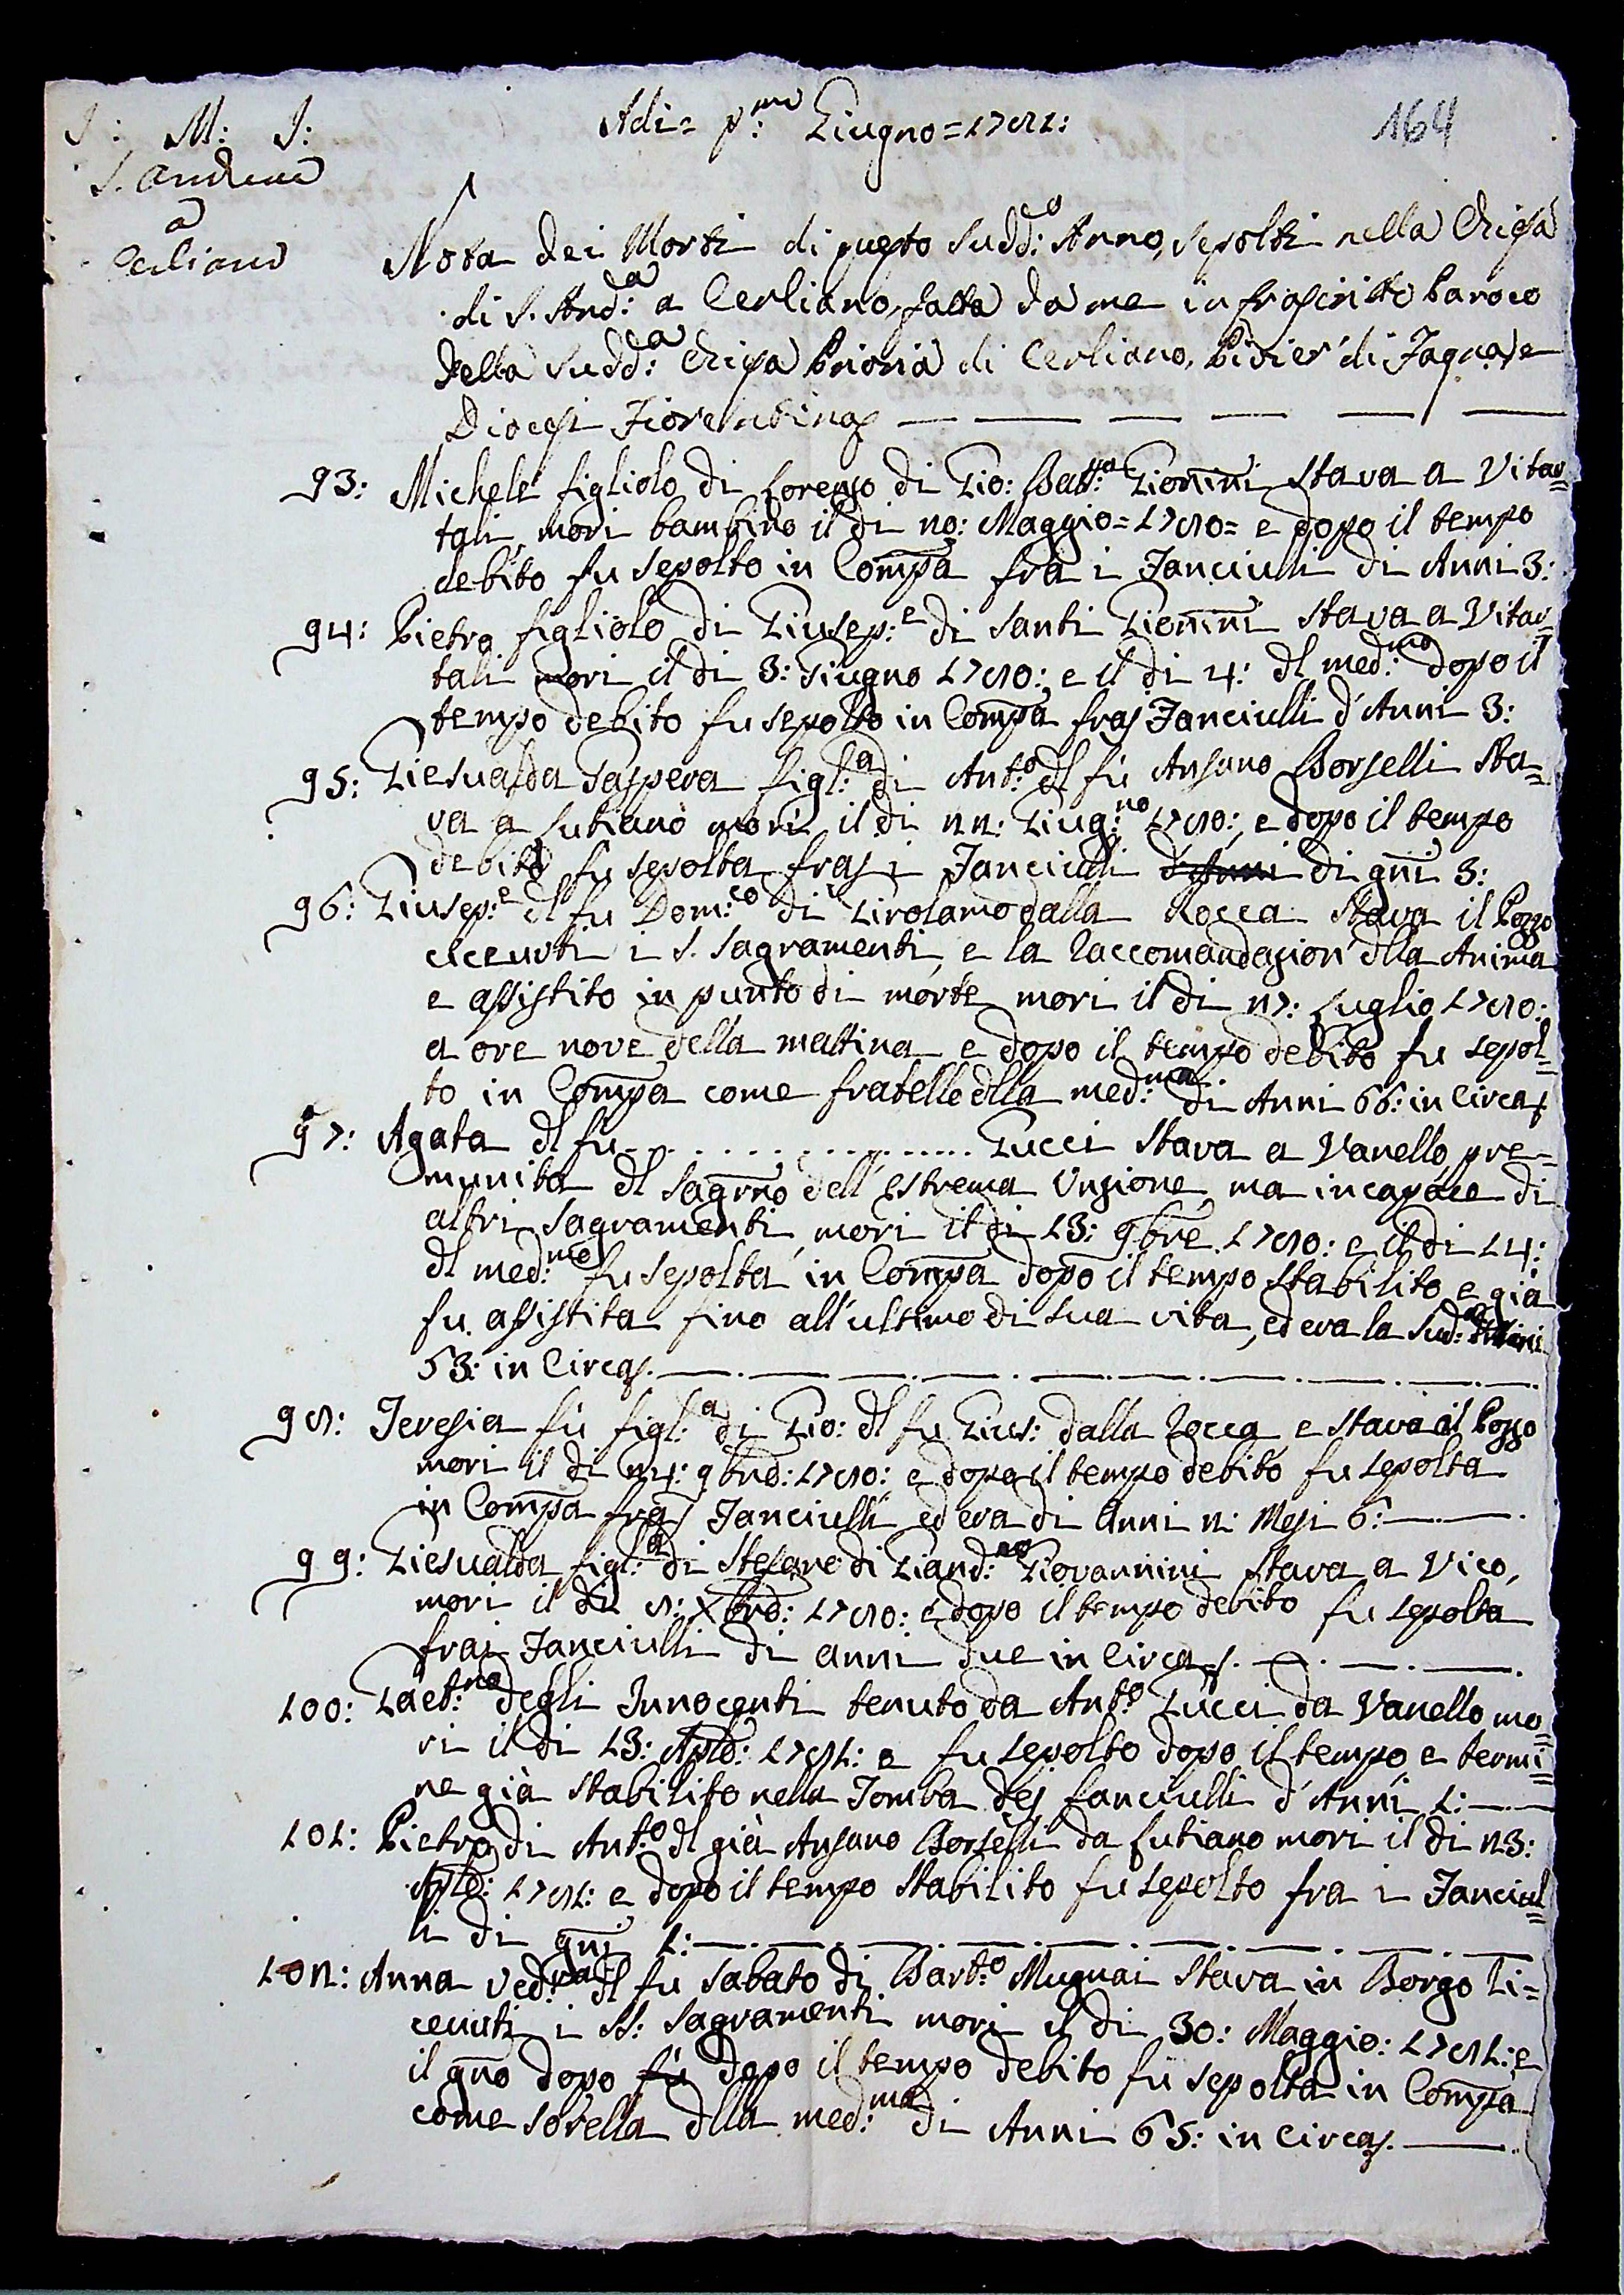 J: M: J:
S. Andrea
a
Cerliano
Adi= p:mo Giugno=1781:
164
Nota dei Morti di questo Sudd:o Anno, sepolti nella Chiesa
di S. And:a a Cerliano, fatta da me infrascritto Paroco
della Sudd:a Chiesa Prioria di Cerliano, Pivier' di Fagna, e
Diocesi Fiorentina
93: Michele figliolo di Lorenzo di Gio: Batt:a Gionini stava a Vita=
tali, morì bambino il dì 20: Maggio=1780= e dopo il tempo
debito fu sepolto in Compa fra i Fanciulli di Anni 3:
94: Pietro figliolo di Giusep:e di Santi Gionini stava a Vita=
tali morì il dì 3: Giugno 1780: e il dì 4: dl med:mo dopo il
tempo debito fu sepolto in Compa fra Fanciulli d'Anni 3:
95: Giesualda Gaspera figl:a di Ant:o dl fù Ansano Borselli Sta=
va a Lutiano morì il dì 22: Giug:no 1780:, e dopo il tempo
debito fu sepolta fra i Fanciulli d'Anni di ani 3:
96: Giusep:e dl fu Dom:co di Girolamo dalla Rocca stava il Pozzo
ricevuti i S. Sagramenti, e la Raccomandazion' dlla Anima
e assistito in punto di morte morì il dì 27: Luglio 1780:
a ore nove della mattina e dopo il tempo debito fu sepol=
to in Compa come fratello dlla med:ma di Anni 66: in Circa
97: Agata dl fu . . . . . . . . . . . . . . . Gucci stava a Vanello, pre=
munita dl Sagrno dell'estrema Unzione, ma incapace di
altri Sagramenti, morì il dì 13: 9bre 1780: e il dì 14:
dl med:mo fu sepolta in Compa dopo il tempo stabilito e già
fu assistita fino all'ultimo di sua vita, ed era la Sud:a Anni
53: in Circa.
98: Teresia fù figl:a di Gio: dl fu Gius: dalla Rocca e stava al Pozzo
morì il dì 24: 9bre: 1780: e dopo il tempo debito fu sepolta
in Compa fra Fanciulli ed era di Anni 2: Mesi 6:
99: Giesualda figl:a di Stefano di Giand:no Giovannini stava a Vico,
morì il dì 8: Xbre: 1780: e dopo il tempo debito fu sepolta
frai Fanciulli di anni due in Circa.
100: Gaet:no degli Innocenti tenuto da Ant:o Gucci da Vanello mo=
rì il dì 13: Aple: 1781: e fu sepolto dopo il tempo e termi=
ne già stabilito nella Tomba dei fanciulli d'Anni 1:
101: Pietro di Ant:o dl già Ansano Borselli da Lutiano morì il dì 23:
Aple: 1781: e dopo il tempo stabilito fu sepolto fra i Fanciul=
li di ani 1:
102: Anna Ved:va dl fu Sabato di Bart:o Mugnai stava in Borgo ri=
cevuti i SS: Sagramenti morì il dì 30: Maggio: 1781: e
il gno dopo fù dopo il tempo debito fù sepolta in Compa
come sorella dlla med:ma di Anni 65: in Circa.